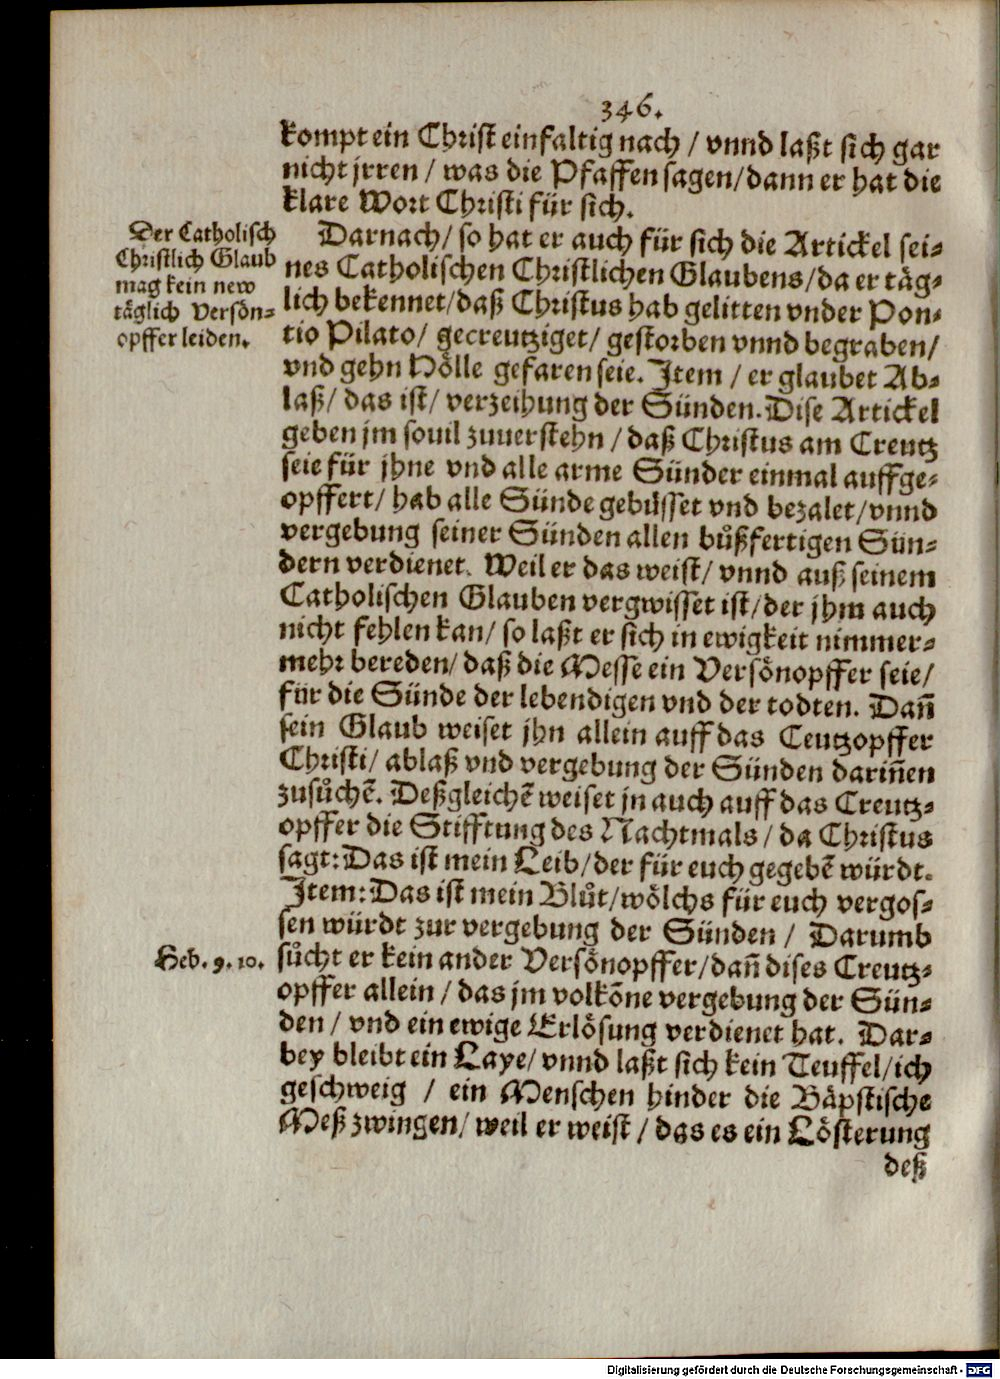 346.
kompt ein Christ einfaltig nach / vnnd laßt sich gar
nicht jrren / was die Pfaffen sagen/ dann er hat die
klare Wort Christi für sich.
Der Catholisch
Christlich Glaub
mag kein new
täglich Versön-
opffer leiden.
Darnach/ so hat er auch für sich die Artickel sei-
nes Catholischen Christlichen Glaubens/ da er täg-
lich bekennet/ daß Christus hab gelitten vnder Pon-
tio Pilato/ gecreutziget/ gestorben vnnd begraben/
vnd gehn Hölle gefaren seie. Item / er glaubet Ab-
laß/ das ist/ verzeihung der Sünden. Dise Artickel
geben jm souil zuuerstehn / daß Christus am Creutz
seie für jhne vnd alle arme Sünder einmal auffge-
opffert/ hab alle Sünde gebüsset vnd bezalet/ vnnd
vergebung seiner Sünden allen bůßfertigen Sün-
dern verdienet. Weil er das weist/ vnnd auß seinem
Catholischen Glauben vergwisset ist/ der jhm auch
nicht fehlen kan/ so laßt er sich in ewigkeit nimmer-
mehr bereden/ daß die Messe ein Versönopffer seie/
für die Sünde der lebendigen vnd der todten. Dañ
sein Glaub weiset jhn allein auff das Ceutzopffer
Christi/ ablaß vnd vergebung der Sünden dariñen
zusůchẽ. Deßgleichẽ weiset jn auch auff das Creutz-
opffer die Stifftung des Nachtmals/ da Christus
sagt: Das ist mein Leib/ der für euch gegebẽ würdt.
Item: Das ist mein Blůt/ wölchs für euch vergos-
sen würdt zur vergebung der Sünden / Darumb
Heb. 9. 10.
sůcht er kein ander Versönopffer/ dañ dises Creutz-
opffer allein / das jm volkõne vergebung der Sün-
den / vnd ein ewige Erlösung verdienet hat. Dar-
bey bleibt ein Laye/ vnnd laßt sich kein Teuffel/ ich
geschweig / ein Menschen hinder die Bäpstische
Meß zwingen/ weil er weist / das es ein Lösterung
deß
Digitalisierung gefördert durch die Deutsche Forschungsgemeinschaft - DFG